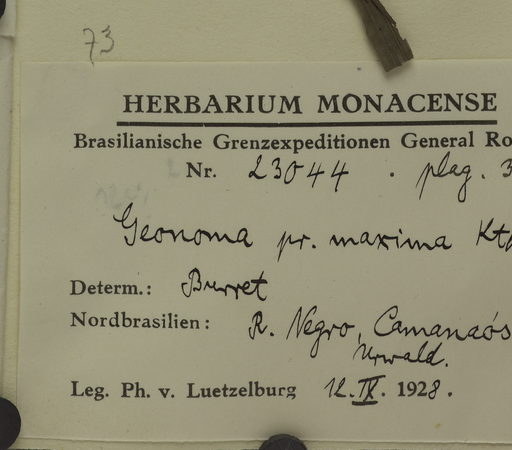 73
HERBARIUM MONACENSE
Brasilianische Grenzexpeditionen General Ro
Nr. 23044 . plag. 3
Geonoma pr. maxima Kth
Determ.: Burret
Nordbrasilien: R. Negro, Camanaós
Urwald.
Leg. Ph. v. Luetzelburg 12. IX. 1928.